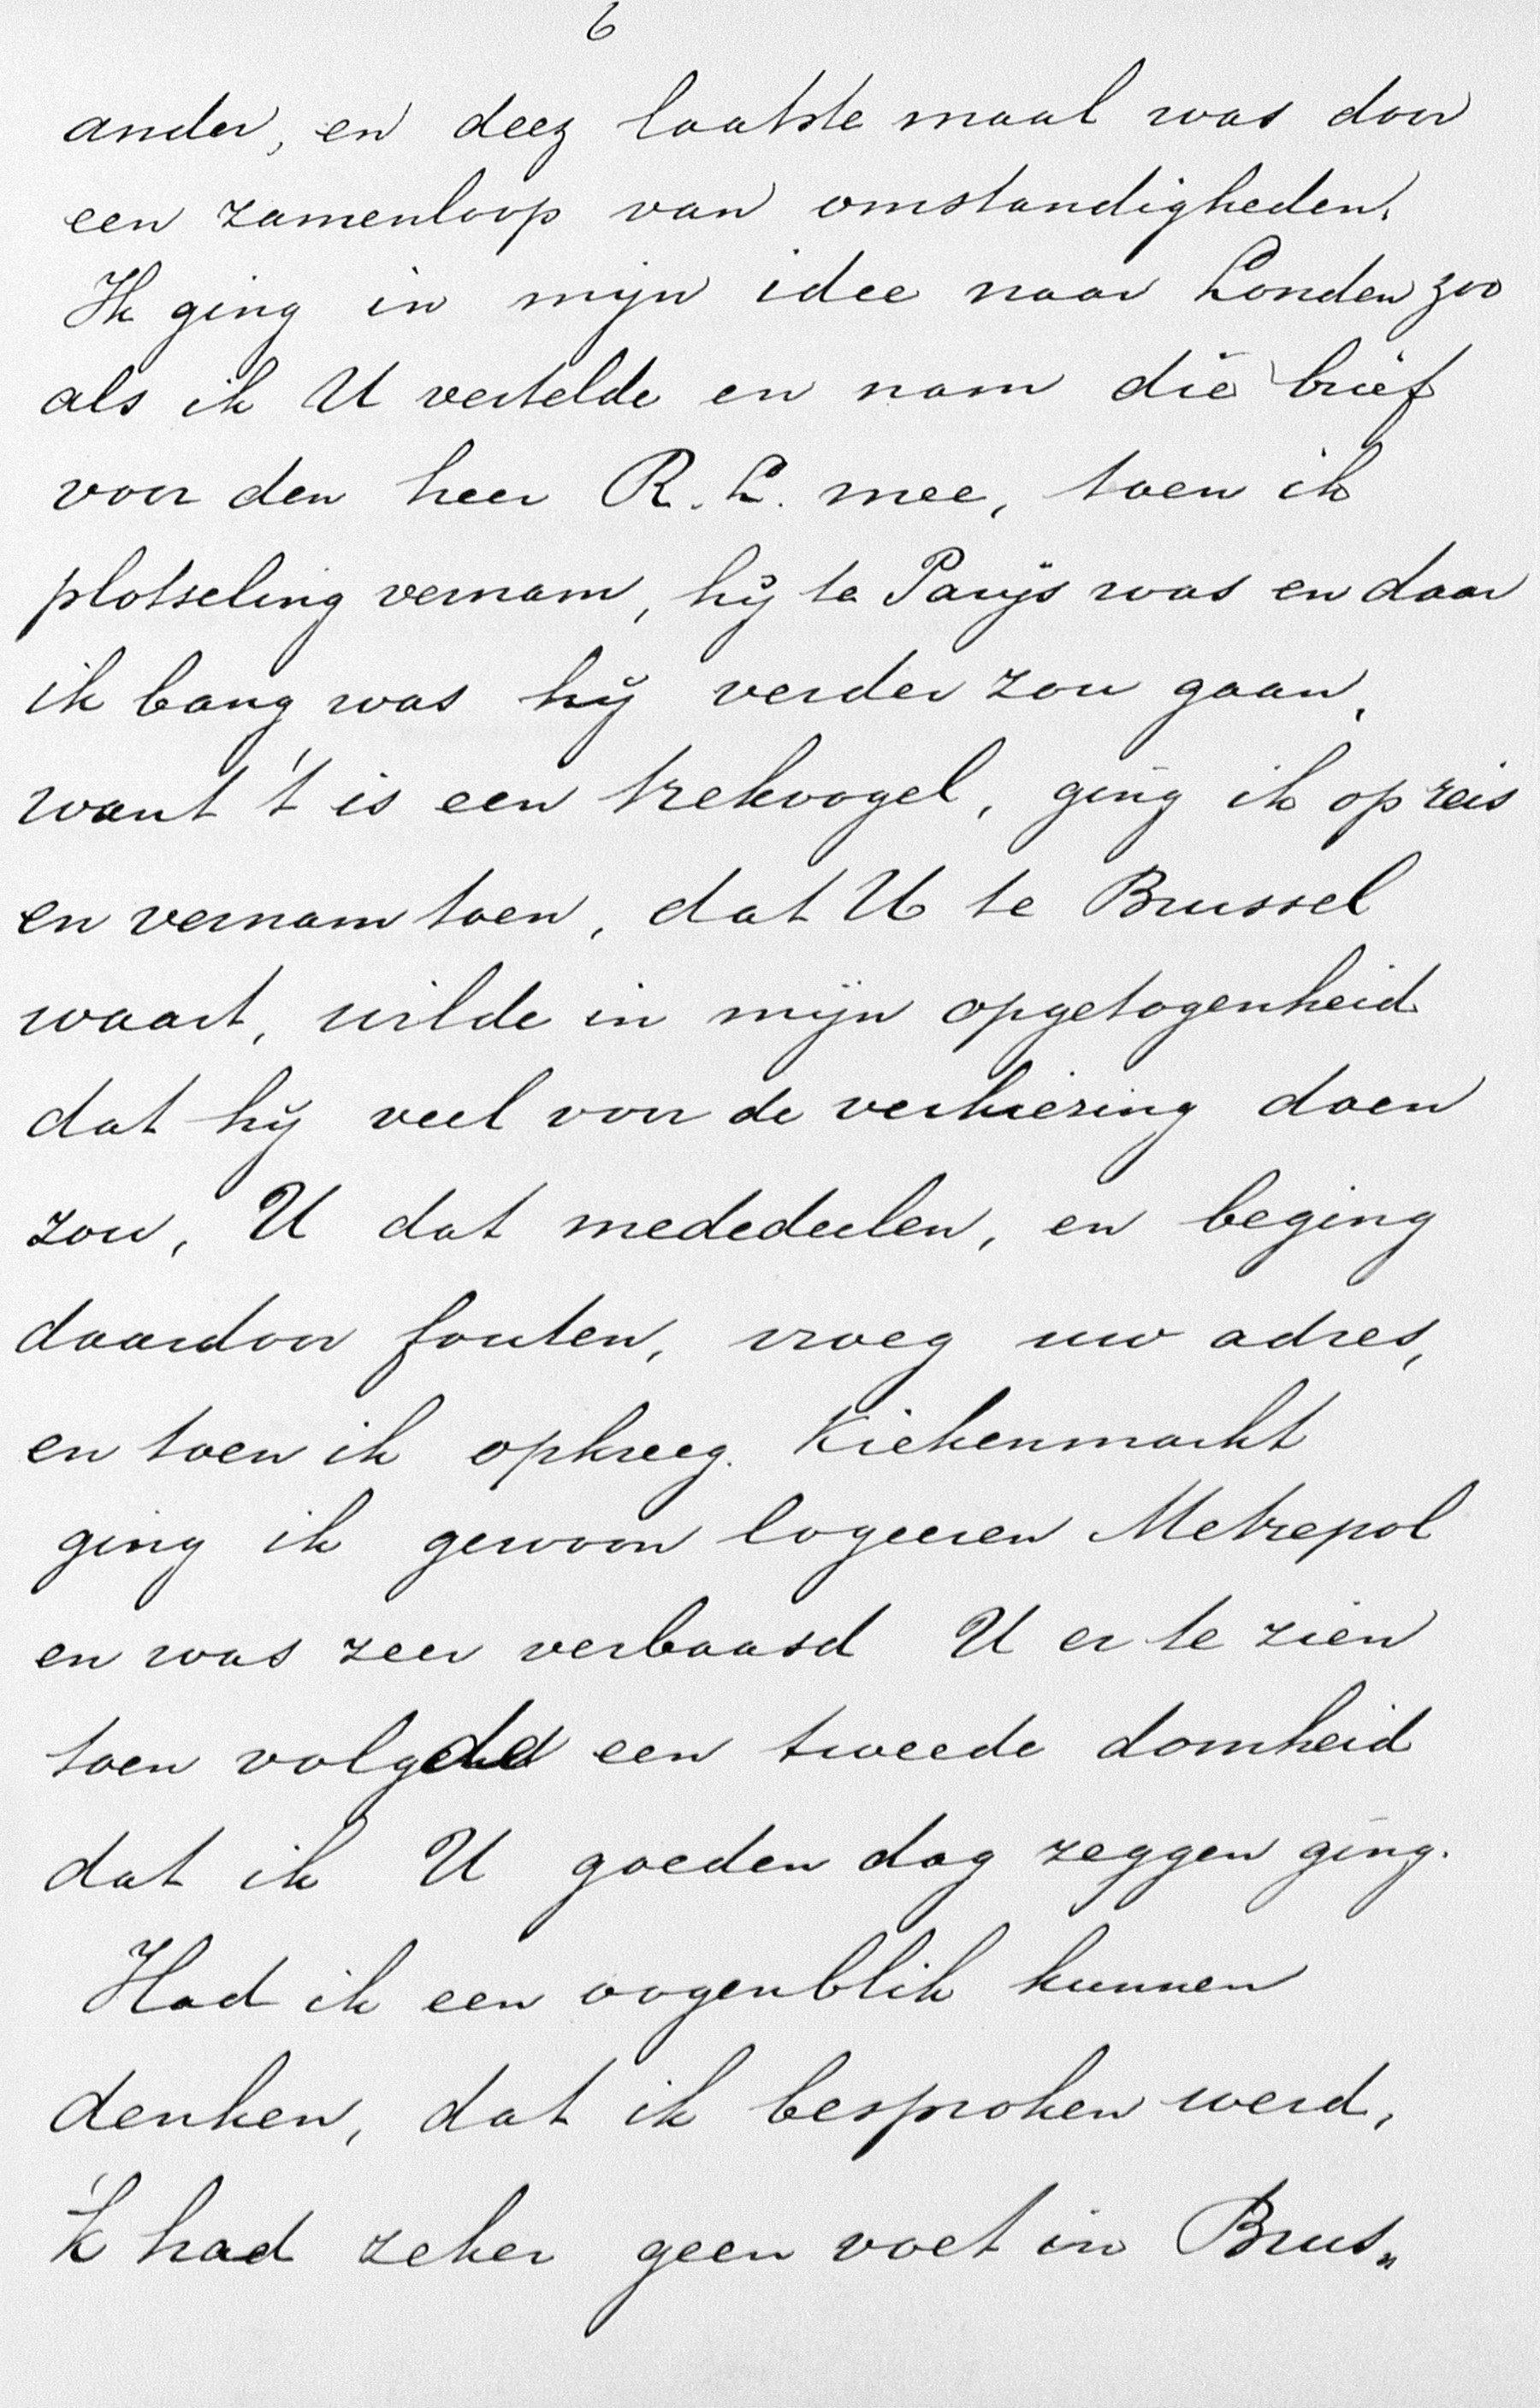 6
ander, en deez laatste maal was door
een zamenloop van omstandigheden.
Ik ging in mijn idee naar Londen zoo
als ik U vertelde en nam die brief
voor den heer R. L. mee, toen ik
plotseling vernam, hij te Parijs was en daar
ik bang was hij verder zou gaan,
want 't is een trekvogel, ging ik op reis
en vernam toen, dat U te Brussel
waart, wilde in mijn opgetogenheid
dat hij veel voor de verkiezing doen
zou, U dat mededeelen, en beging
daardoor fouten, vroeg uw adres,
en toen ik opkreeg. Kiekenmarkt
ging ik gewoon logeeren Metrepol
en was zeer verbaasd U er te zien
toen volgde een tweede domheid
dat ik U goeden dag zeggen ging.
Had ik een oogenblik kunnen
denken, dat ik besproken werd,
'k had zeker geen voet in Brus„